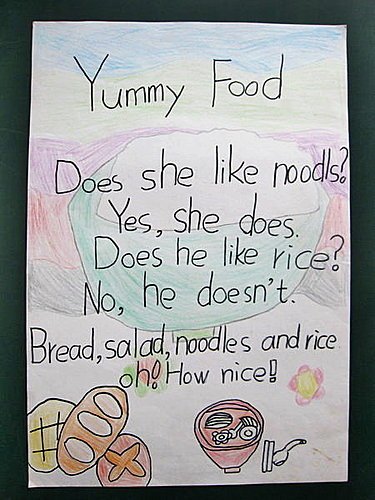 Yummy Food
Does she like noodls?
Yes, she does.
Does he like rice?
No, he doesn't.
Bread, salad, noodles and rice
oh! How nice!